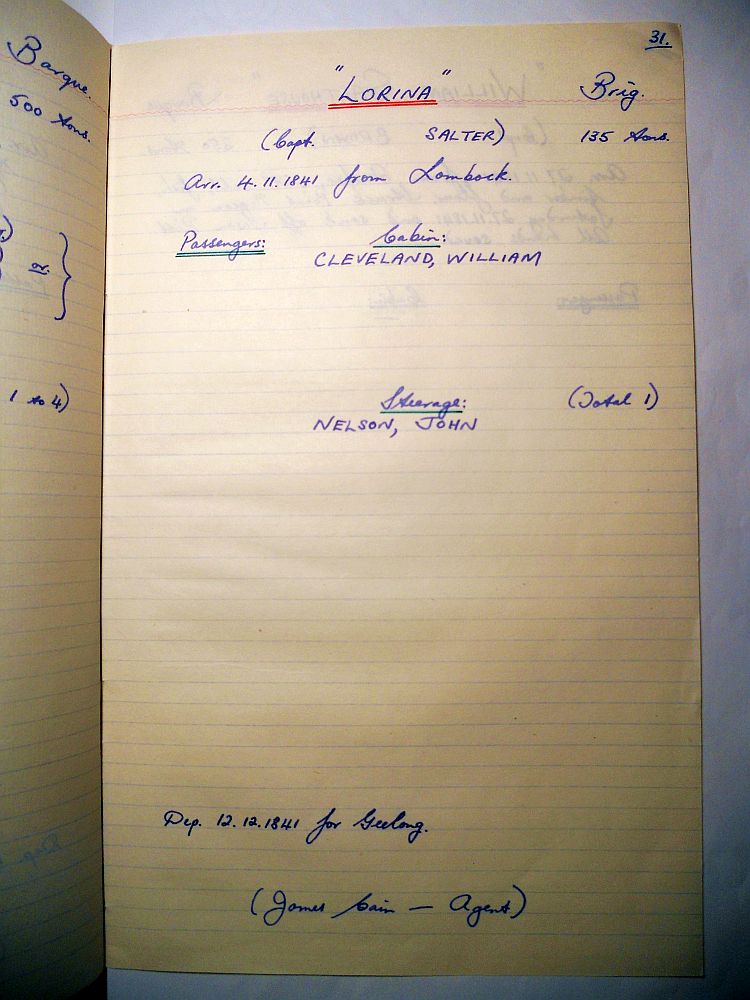 Barque.
500 tons.
or
1 to 4)
31.
"LORINA" Brig.
(Capt. SALTER) 135 tons.
Arr. 4.11.1841 from Lombock.
Passengers: Cabin:
CLEVELAND, WILLIAM
Steerage: (Total 1)
NELSON, JOHN
Dep. 12.12.1841 for Geelong.
(James Cain — Agent)